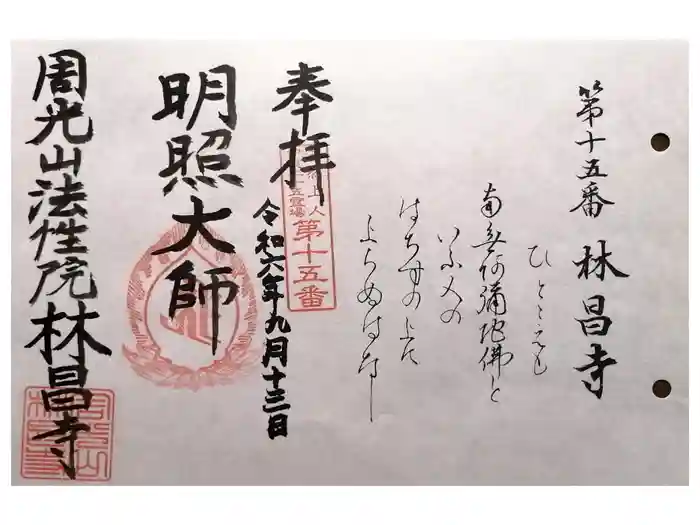 第十五番 林昌寺
ひとこえも
南無阿彌陀佛と
いふ人の
はちすの上に
のらぬはなし
奉拝
上人
十五霊場
第十五番
令和六年九月十三日
明照大師
周光山法性院林昌寺